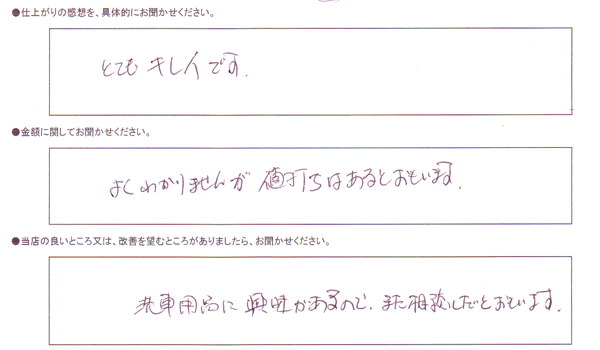 ●仕上がりの感想を、具体的にお聞かせください。
とてもキレイです.
●金額に関してお聞かせください。
よくわかりませんが 値打ちはあるとおもいます.
●当店の良いところ又は、改善を望むところがありましたら、お聞かせください。
洗車用品に興味があるので、また相談しだとおもいます.